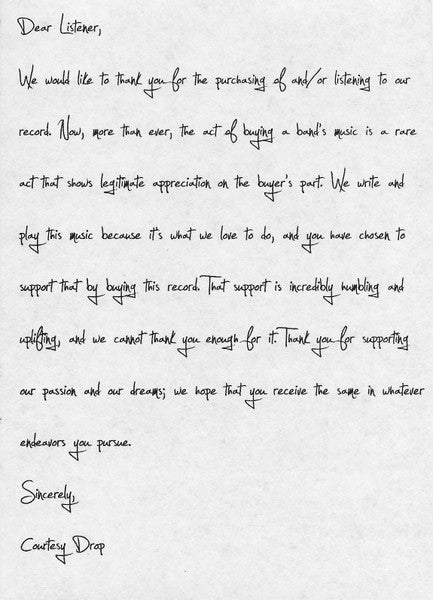 Dear Listener,
We would like to thank you for the purchasing of and/or listening to our
record. Now, more than ever, the act of buying a band's music is a rare
act that shows legitimate appreciation on the buyer's part. We write and
play this music because it's what we love to do, and you have chosen to
support that by buying this record. That support is incredibly humbling and
uplifting, and we cannot thank you enough for it. Thank you for supporting
our passion and our dreams; we hope that you receive the same in whatever
endeavors you pursue.
Sincerely,
Courtesy Drop